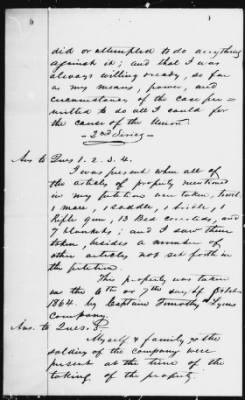 did or attempted to do anything
against it; and that I was
always willing & ready, so far
as my means, power, and
circumstances of the case per=
mitted to do all I could for
the cause of the Union.
2nd Series
Ans to Ques 1. 2. 3. 4.
I was present when all of
the articles of property mentioned
in my petition were taken,
1 mare, 1 saddle, 1 bridle, 1
Rifle gun, 13 Bed coverlids, and
7 blankets; and I saw them
taken, besides a number of
other articles not set forth in
the petition.
The property was taken
on the 6th or 7th day of
1864. by Captain Timothy Lyons
company.
Ans. to Ques. 5.
Myself & family & the
soldiers of the company were
present at the time of the
taking of the property